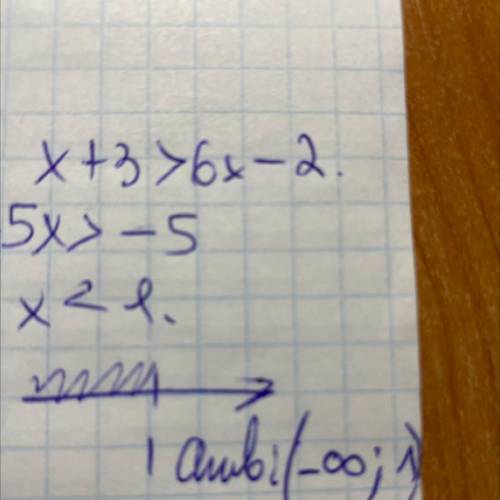 x+3>6x-2.
5x>-5
x<1.
1 Ответ: (-∞; 1)